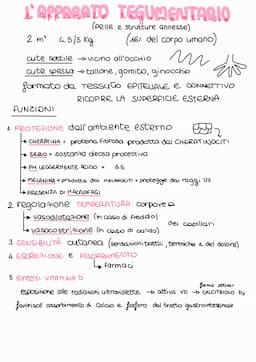 L'APPARATO TEGUMENTARIO
(PELLE e strutture annesse)
2 m² 4,5/5 Kg (16% del corpo umano)
cute sottile → vicino all'occhio
cute spessa → tallone, gomito, ginocchio
formato da TESSUTO EPITELIALE e CONNETTIVO
RICOPRE LA SUPERFICIE ESTERNA
FUNZIONI
1 PROTEZIONE dall'ambiente esterno
↳ CHERATINA = proteina fibrosa prodotta dai CHERATINOCITI
↳ SEBO = sostanza oleosa protettiva
↳ PH LEGGERMENTE ACIDO = 5.5
↳ MELANINA = prodotta dai MELANOCITI → protegge dai raggi UV
↳ PRESENZA DI MACROFAGI
2 regolazione TEMPERATURA corporea
↳ vasodilatazione (in caso di freddo)
↳ vasocostrizione (in caso di caldo)
dei capillari
3 SENSIBILITÀ cutanea (sensazioni tattili, termiche e del dolore)
4 ESCREZIONE e ASSORBIMENTO
↳ farmaci
5 SINTESI VITAMINA D
forma attiva
esposizione alle radiazioni ultraviolette → attiva VD → CALCITRIOLO D3
favorisce assorbimento di calcio e fosforo del tratto gastrointestinale